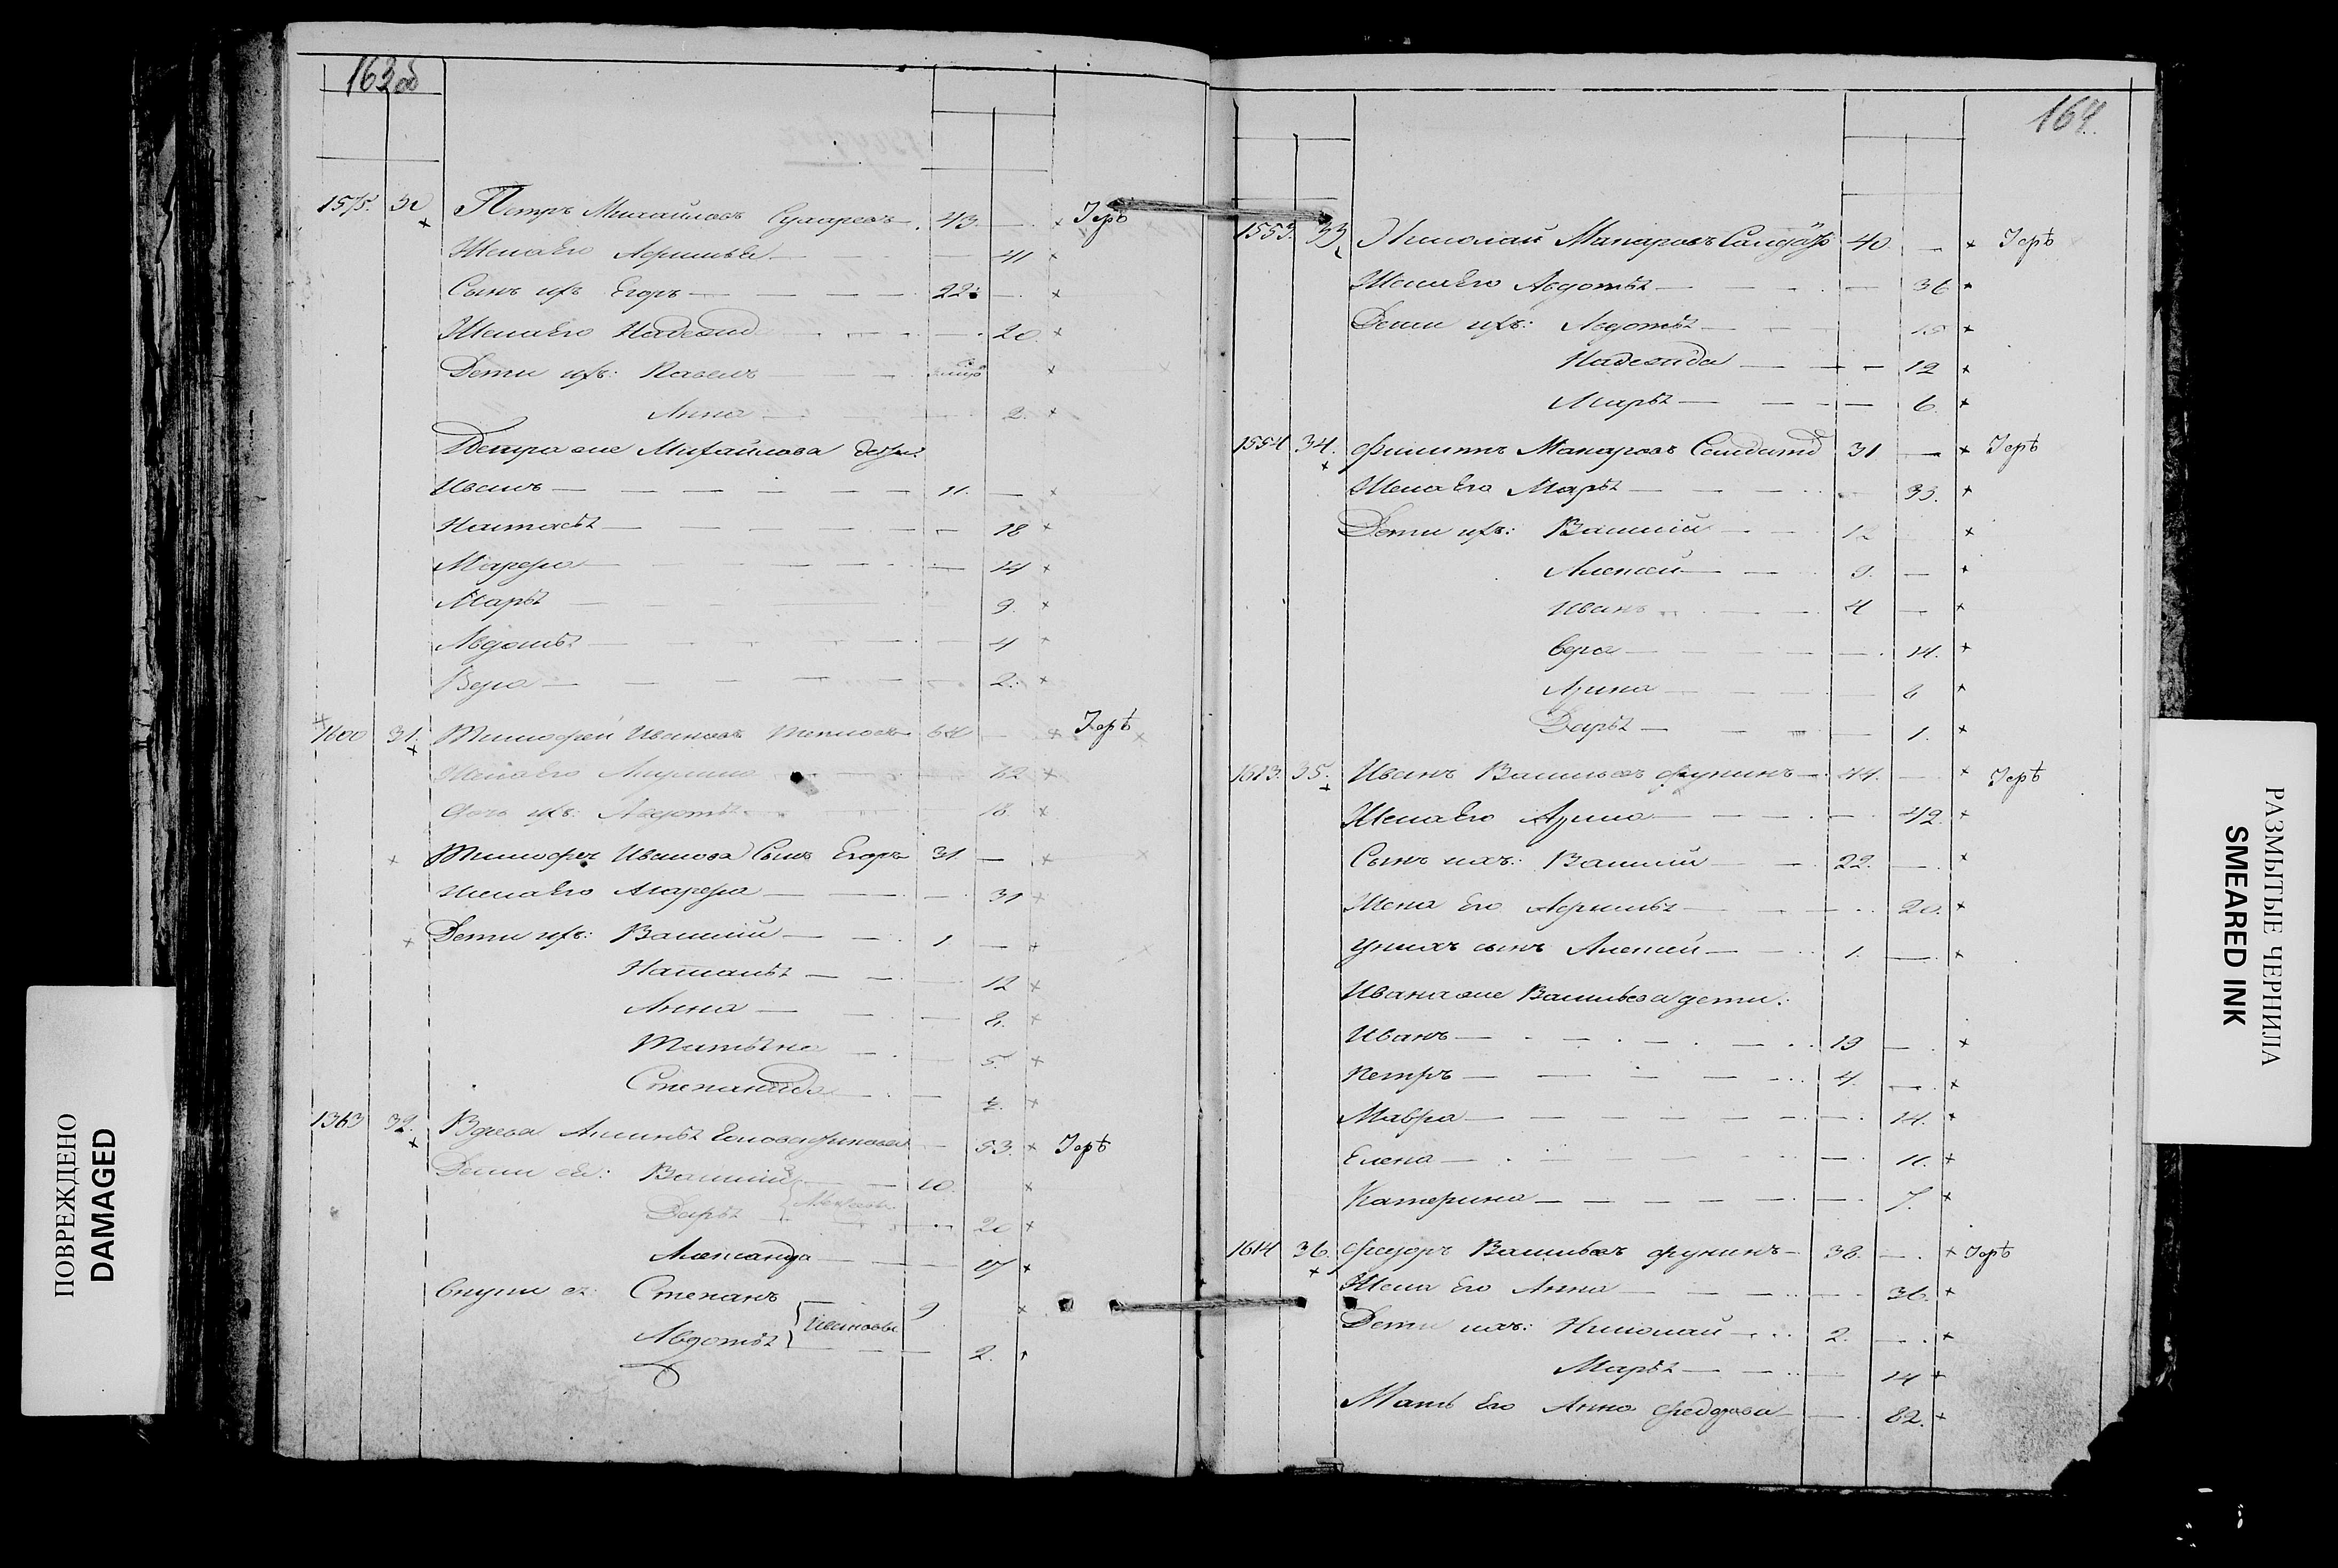 163 об
1575. 30 Петръ Михайловъ Сухаревъ 43. — × Іерѣ
Жена Его Афимья — 41 ×
Сынъ ихъ Егоръ — 22 — ×
Жена Его Надежда — 20 ×
Дети ихъ: Павелъ — ×
Анна — 2. ×
Петра же Михайлова дети:
Иванъ — 11. — ×
Настасья — 18 ×
Марфра — 14 ×
Марья — 9. ×
Авдотья — 4 ×
Вера — 2. ×
1600 31. Тимофей Ивановъ 64 — × Іерѣ
Жена Его Акулина 62 ×
Дочь ихъ: Авдотья 18 ×
× Тимофея Иванова Сынъ Егоръ 31. — ×
Жена Его Марфра — 31 ×
× Дети ихъ: Василий — 1 — ×
Наталья — 12 ×
Анна — 8. ×
Татьяна — 5. ×
Степанида — 2. ×
1363 32. Вдова Аксинья — 53. × Іерѣ
Дети ея: Василий — 10. ×
Дарья — 20 ×
Александра — 17 ×
Внуки ея: Степанъ — 9 ×
Авдотья Ивановы — 2. ×
164.
1553. 33 Николай Макаровъ Солдатъ 40 — × Іерѣ
Жена Его Авдотья — 36 ×
Дети ихъ: Авдотья — 15 ×
Надежда — 12 ×
Марья — 6. ×
1554 34. Филиппъ Макаровъ Солдатъ 31 — × Іерѣ
Жена Его Марья — 33. ×
Дети ихъ: Василий — 12 ×
Алексей — 9. — ×
Иванъ — 4 — ×
Вера — 14. ×
Арина — 6 ×
Дарья — 1. ×
1613. 35. Иванъ Васильевъ Фунинъ — 44. — × Іерѣ
Жена Его Арина — 42. ×
Сынъ ихъ: Василий — 22. — ×
Жена Его Афимья — 20. ×
У нихъ сынъ Алексей — 1. — ×
Ивана же Васильева дети:
Иванъ — 19 — ×
Петръ — 4. — ×
Мавра — 14. ×
Елена — 11. ×
Катерина — 7. ×
1614 36. Федоръ Васильевъ Фунинъ — 38. — × Іерѣ
Жена Его Анна — 36. ×
Дети ихъ: Николай — 2. — ×
Марья — 14 ×
Мать Его Анна Федорова — 82. ×
ПОВРЕЖДЕНО
DAMAGED
РАЗМЫТЫЕ ЧЕРНИЛА
SMEARED INK